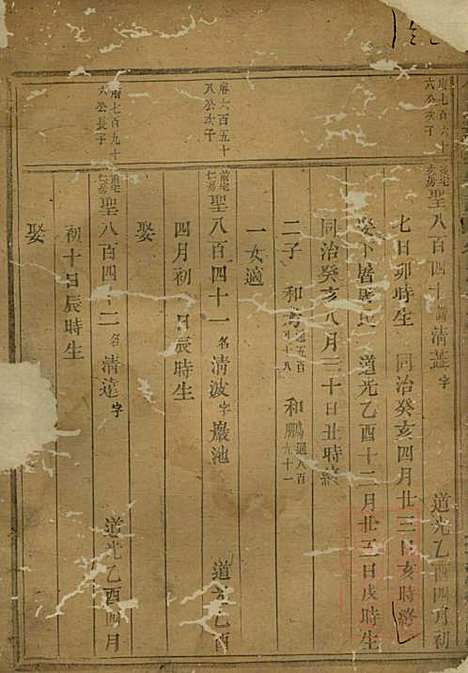 府七百六十
六公次子
聖八百四十 諱 清蓋 字 道光乙酉四月初
七日卯時生 同治癸亥四月廿三日亥時終
娶下 道光乙酉十二月廿五日戌時生
同治癸亥八月三十日丑時終
二子 和 和鵬 通八百九十一
一女適
府六百五十
八公次子
前宅仁房 聖八百四十一 名 清波 字 巖池 道光乙酉
四月初 日辰時生
娶
府七百九十
公長子
前宅仁房 聖八百四十二 名 清遠 字 道光乙酉四月
初十日辰時生
娶